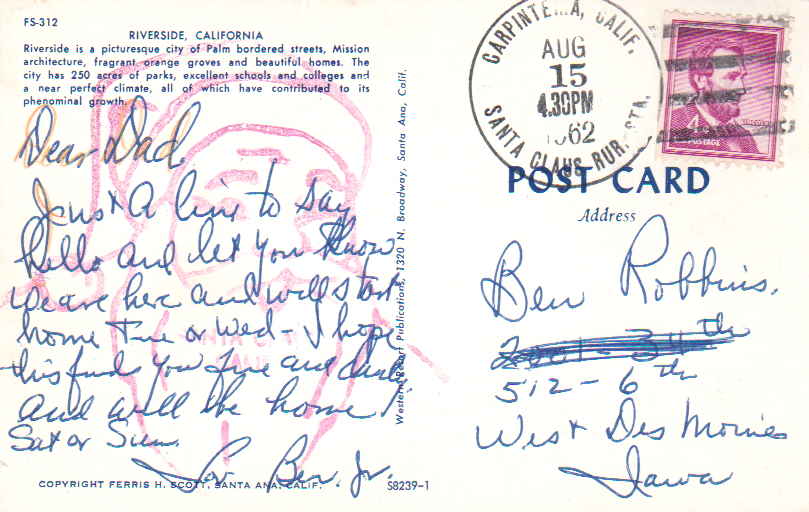 FS-312
RIVERSIDE, CALIFORNIA
Riverside is a picturesque city of Palm bordered streets, Mission
architecture, fragrant orange groves and beautiful homes. The
city has 250 acres of parks, excellent schools and colleges and
a near perfect climate, all of which have contributed to its
phenomenal growth.
Dear Dad
Jus* A line to say
hello and let you Know
we are here and will start
home Tue or Wed - I hope
this finds you fine and
and will be home
Sat or Sun.
Lov Ben. Jr.
COPYRIGHT FERRIS H. SCOTT, SANTA ANA, CALIF.
S8239-1
Western Resort Publications, 1320 N. Broadway, Santa Ana, Calif.
SANTA CLAUS
CALIF
CARPINTERIA, CALIF.
AUG
15
4.30PM
1962
SANTA CLAUS RUR. STA.
4¢
POSTAGE
POST CARD
Address
Ben Robbins.
512 - 6th
West Des Moines
Iowa